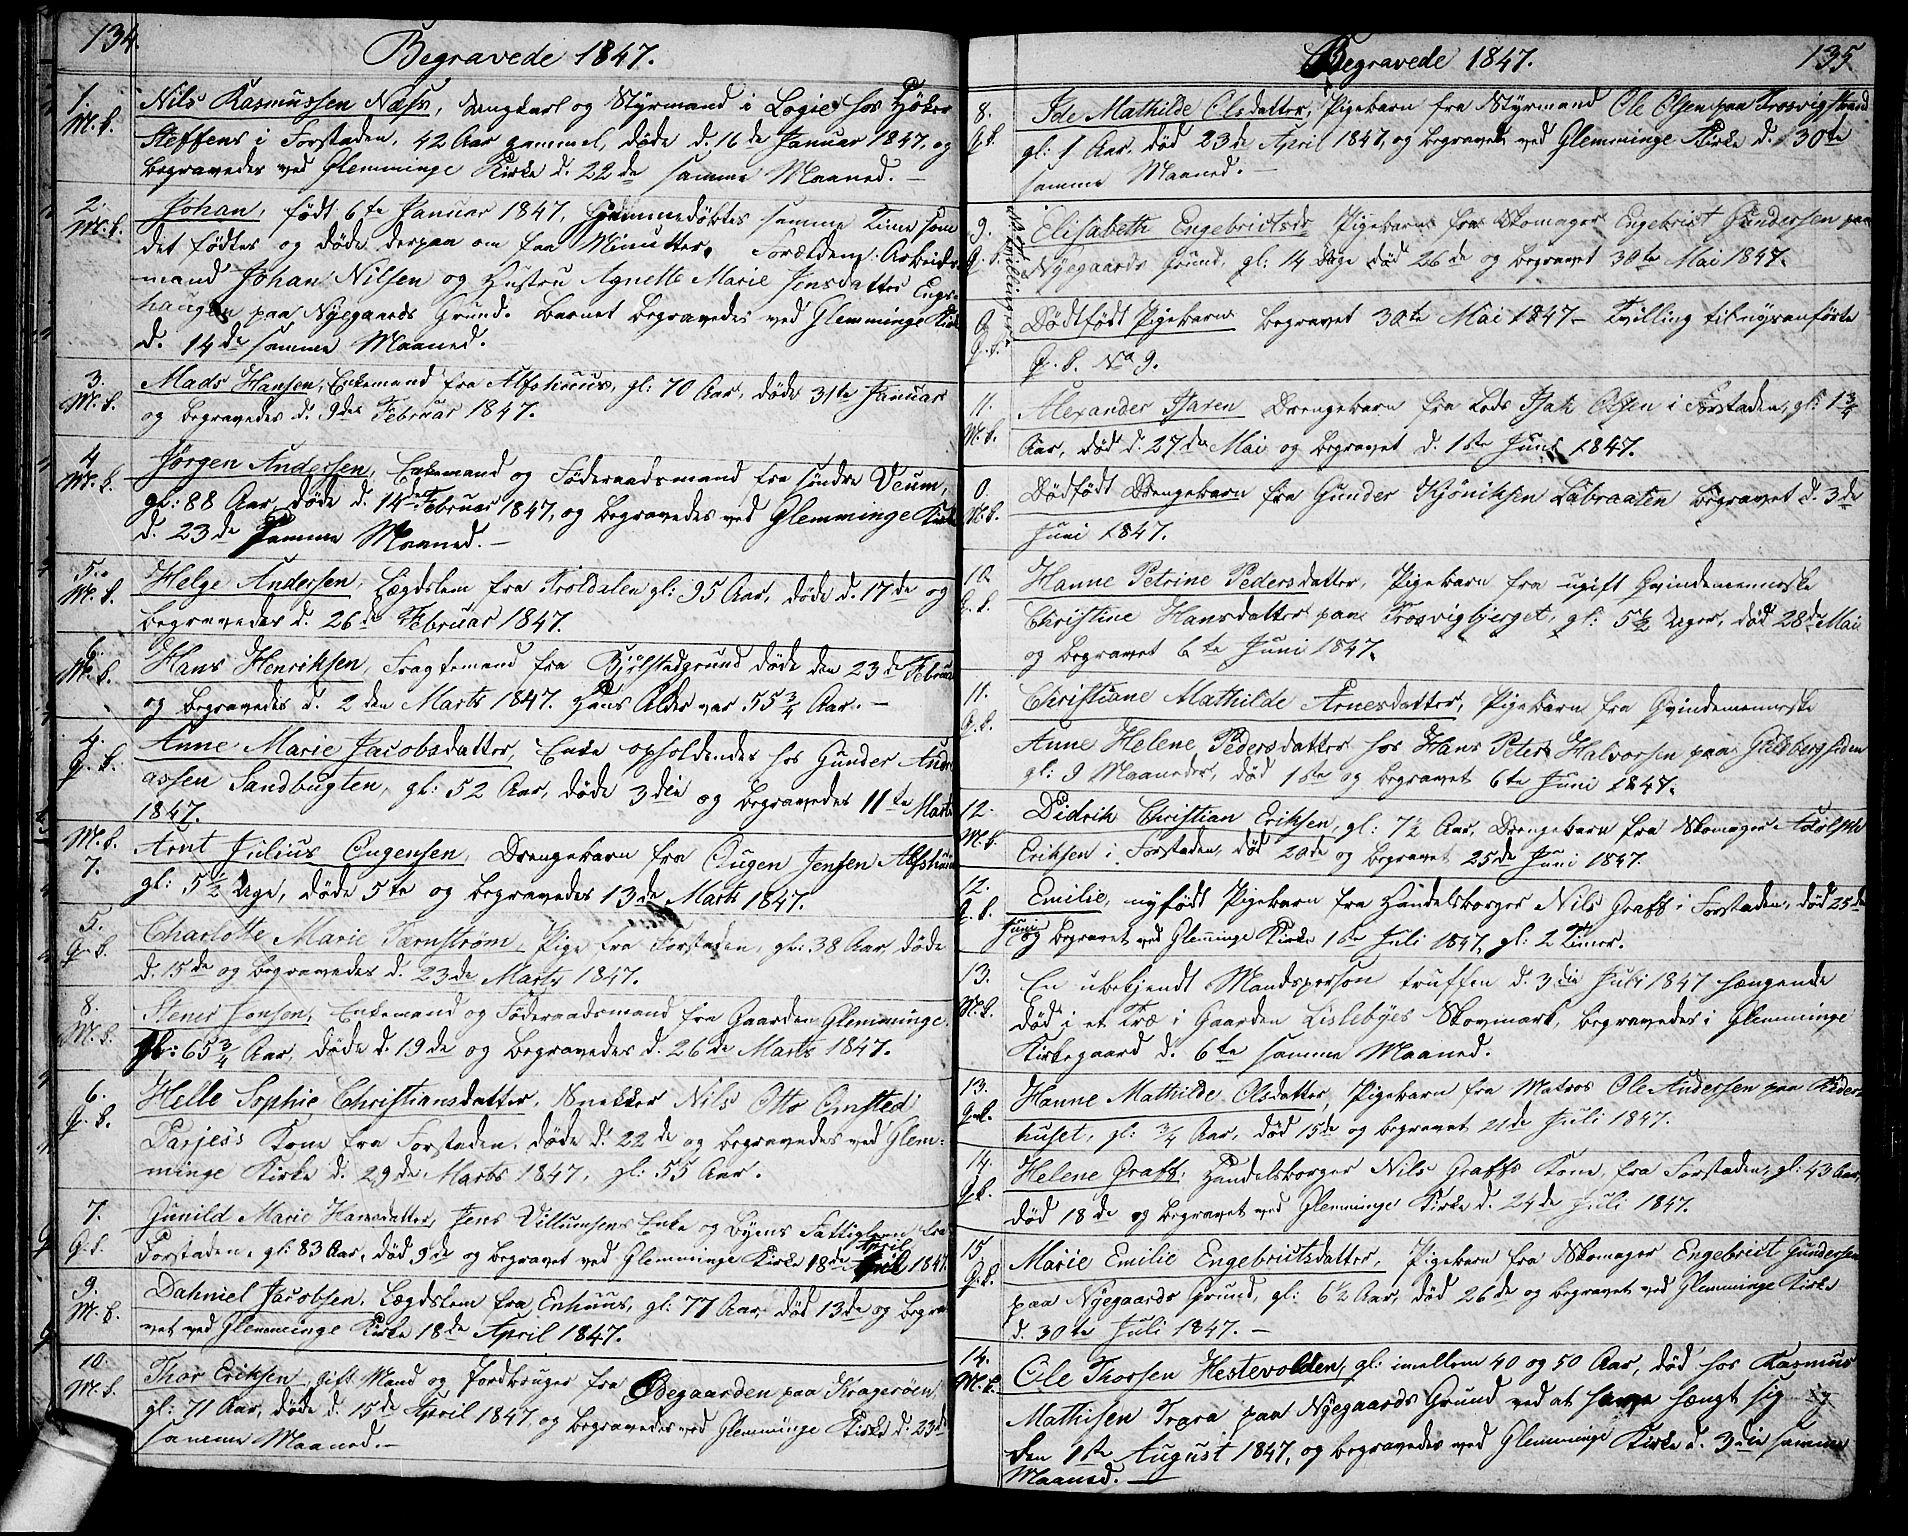 134.
Begravede 1847.
1. Nils Rasmussen Næss, Ungkarl og Styrmand i Logie hos Høker
M.k. Steffens i Forstaden, 42 Aar gammel, døde d. 16de Januar 1847, og
begravedes ved Glemminge Kirke d. 22de samme Maaned. —
2. Johan, født 6te Januar 1847, hjemmedøbtes samme Time som
M.k. det fødtes og døde derpaa om faa Minutter. Forældene: Arbeids-
mand Johan Nilsen og Hustru Agnette Marie Jensdatter Engs-
haugen paa Nyegaards Grund. Barnet begravedes ved Glemminge Kirke
d. 14de samme Maaned.
3. Mads Hansen, Enkemand fra Alfshuus, gl: 70 Aar, døde 31te Januar
M.k. og begravedes d. 9de Februar 1847.
4 Jørgen Andersen, Enkemand og Föderaadsmand fra søndre Veum,
M.k. gl: 88 Aar, døde d. 14de Februar 1847, og begravedes ved Glemminge Kirke
d. 23de samme Maaned. —
5. Helge Andersen, Lægdslem fra Troldalen gl: 95 Aar, døde d. 17de og
M.k. begravedes d. 26de Februar 1847.
6. Hans Henriksen, Fragtemand fra Kjølstadgrund døde den 23de Februar
M.k. og begravedes d. 2den Marts 1847. Hans Alder var 55 3/4 Aar. —
4. Anne Marie Jacobsdatter, Enke opholdendes hos Gunder Andre-
Q.k. assen Sandbugten, gl: 52 Aar, døde 3die og begravedes 11te Marts
1847.
M.k. Arnt Julius Eugensen, Drengebarn fra Eugen Jensen Alfshuus
7. gl: 5 1/2 Uge, døde 5te og begravedes 13de Marts 1847.
5. Charlotte Marie Tærnström, Pige fra Forstaden, gl: 38 Aar, døde
Q.k. d. 15de og begravedes d. 23de Marts 1847.
8. Stener Jonsen, Enkemand og Föderaadsmand fra Gaarden Glemminge.
M.k. gl: 65 3/4 Aar, døde d. 19de og begravedes d. 26de Marts 1847.
6. Helle Sophie Christiansdatter, Snekker Nils Otto Omsted
Q.k. Parjess Kone fra Forstaden, døde d. 22de og begravedes ved Glem-
minge Kirke d. 29de Marts 1847, gl: 55 Aar.
7. Gunild Marie Hansdatter, Jens Villumsens Enke og Byens Fattiglem fra
Q.k. Forstaden, gl: 83 Aar, død 9de og begravet ved Glemminge Kirke 18de April 1847.
9. Dahniel Jacobsen, Lægdslem fra Enhuus, gl: 77 Aar, død 13de og begra-
M.k. vet ved Glemminge Kirke 18de April 1847.
10. Thor Eriksen, gift Mand og Jordbruger fra Ødegaarden paa Kragerøen,
M.k. gl: 71 Aar, døde d. 15de April 1847 og begravedes ved Glemminge Kirke d. 23de
samme Maaned. —
Begravede 1847.
135.
8. Ide Mathilde Olsdatter, Pigebarn fra Styrmand Ole Olsen paa Trosvigstrand
Q.k. gl: 1 Aar, død 23de April 1847, og begravet ved Glemminge Kirke d. 30te
samme Maaned. —
9. Elisabeth Engebrictsdr Pigebarn fra Skomager Engebrict Gundersen paa
Q.k. Nyegaards Grund, gl: 14 Dage død 26de og begravet 30te Mai 1847.
0 Dødfødt Pigebarn begravet 30te Mai 1847 — Tvilling til nysanførte
Q.k. Q.k. No 9.
11. Alexander Isaren Drengebarn fra Lods Isak Olsen i Forstaden, gl: 1 3/4
M.k. Aar, død d. 27de Mai og begravet d. 1ste Juni 1847.
0. Dødfødt Drengebarn fra Gunder Kjöniksen Labraaten begravet d. 3de
M.k. Juni 1847.
10. Hanne Petrine Pedersdatter, Pigebarn fra ugift Qvindemenneske
Q.k. Christine Hansdatter paa Trosvigbjerget, gl: 5 1/2 Uger, død 28de Mai
og begravet 6te Juni 1847.
11. Christiane Mathilde Arnesdatter, Pigebarn fra Qvindemenneske
Q.k. Anne Helene Pedersdatter hos Hans Peter Halvorsen paa Guldbergsiden
gl: 9 Maaneder, død 1ste og begravet 6te Juni 1847.
12. Didrik Christian Eriksen, gl: 7 1/2 Aar, Drengebarn fra Skomager Adolph
M.k. Eriksen i Forstaden, død 20de og begravet 25de Juni 1847.
12. Emilie, nyfødt Pigebarn fra Handelsborger Nils Graff i Forstaden, død 25de
Q.k. Juni og begravet ved Glemminge Kirke 1ste Juli 1847, gl: 2 Timer.
13. En ubekjendt Mandsperson truffen d. 3die Juli 1847 hængende
M.k. død i et Træ i Gaarden Lislebyes Skovmark, begravedes i Glemminge
Kirkegaard d. 6te samme Maaned.
13. Hanne Mathilde Olsdatter, Pigebarn fra Matros Ole Andersen paa
Q.k. huset, gl: 3/4 Aar, død 15de og begravet 21de Juli 1847.
14. Helene Graff, Handelsborger Nils Graffs Kone, fra Forstaden, gl: 43 Aar,
Q.k. død 18de og begravet ved Glemminge Kirke d. 24de Juli 1847.
15. Marie Emilie Engebrictsdatter, Pigebarn fra Skomager Engebrict Gundersen
Q.k. paa Nyegaards Grund, gl: 6 1/2 Aar, død 26de og begravet ved Glemminge Kirke
d. 30te Juli 1847. —
14. Ole Thorsen Hestevolden, gl: imellem 40 og 50 Aar, død hos Rasmus
M.k. Mathisen Trara paa Nyegaards Grund ved at have hængt sig
den 1ste August 1847, og begravedes ved Glemminge Kirke d. 3die samme
Maaned. —